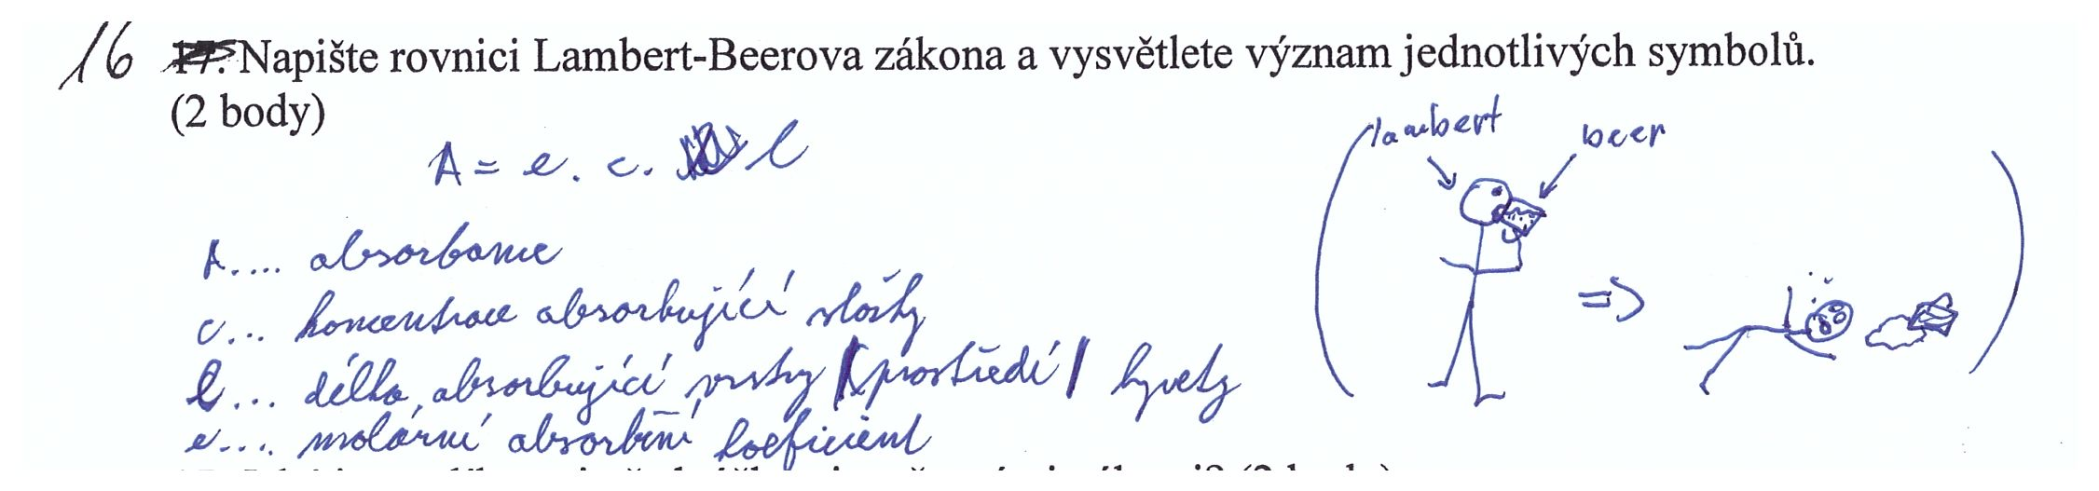 16 17. Napište rovnici Lambert-Beerova zákona a vysvětlete význam jednotlivých symbolů.
(2 body)
A = e. c. l
A.... absorbance
c... koncentrace absorbující složky
l... délka absorbující vrstvy (prostředí) kyvety
e.... molární absorbční koeficient
lambert
beer
=>